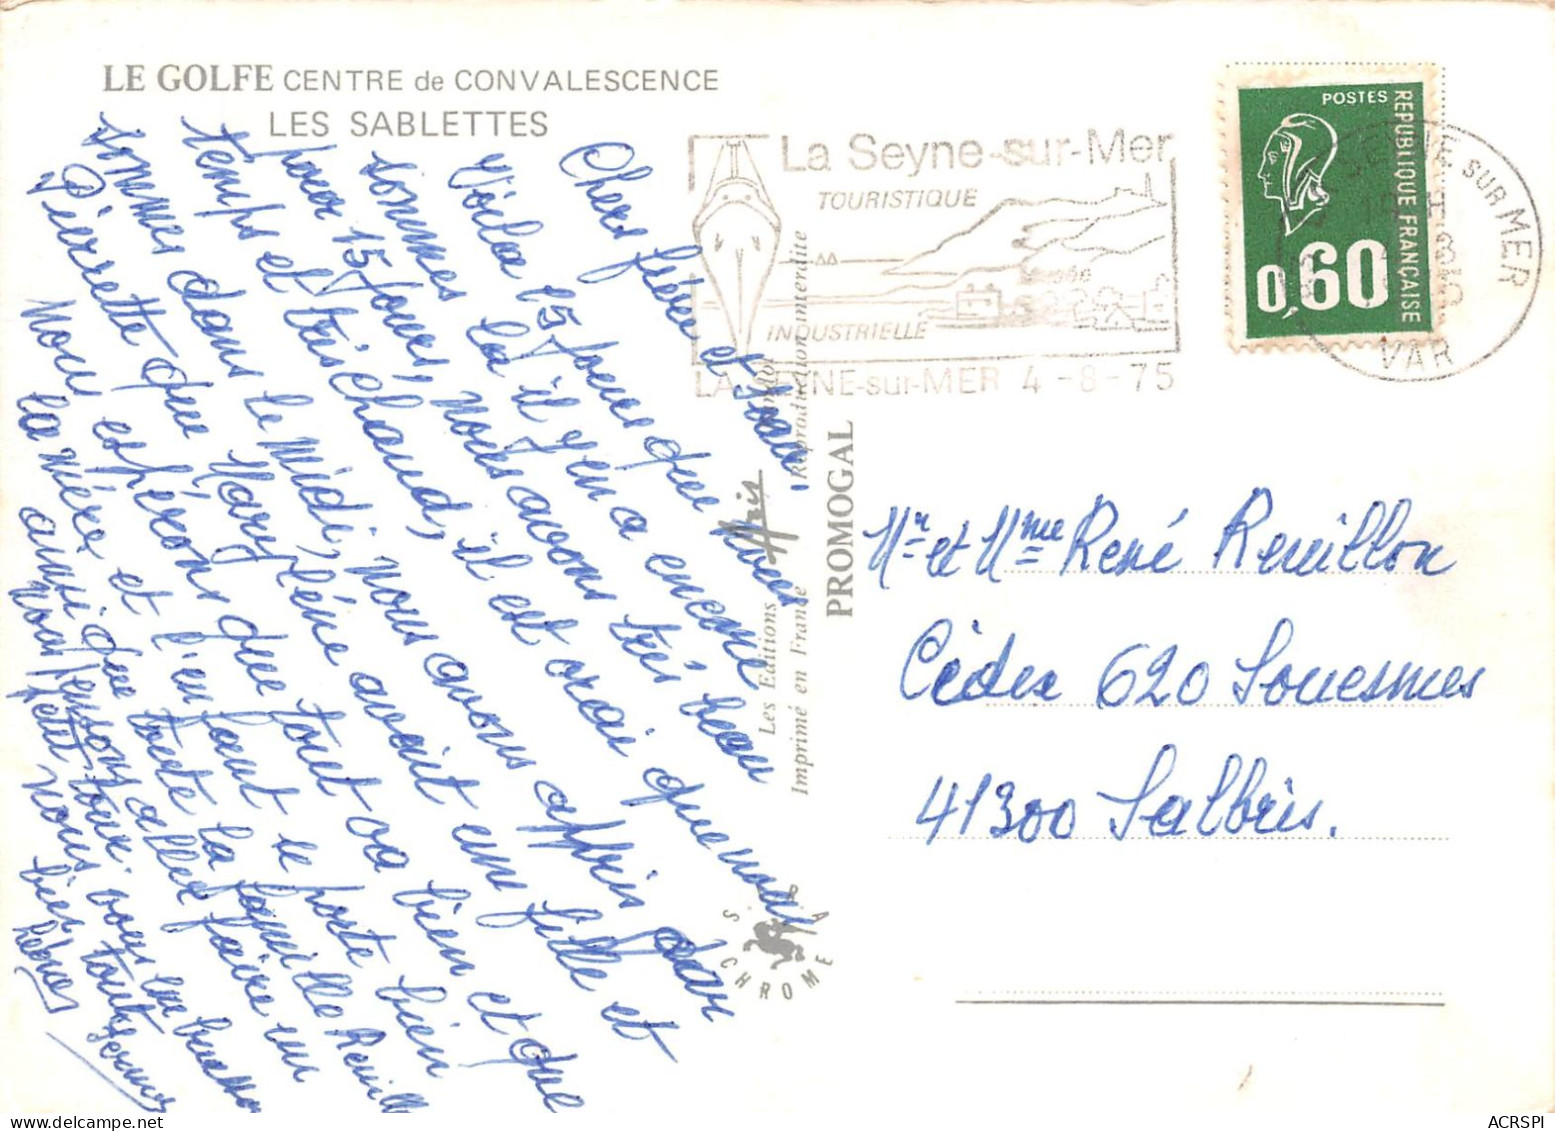 LE GOLFE CENTRE de CONVALESCENCE
LES SABLETTES
Chers frère et Soeur,
Voila 15 jours que nous
sommes la il y en a encore
pour 15 jours, nous avons très beau
temps et très chaud, il est vrai que nous
sommes dans le midi, nous avons appris par
Pierrette que Marylène avait eu fille et
Nous espérons que tout va bien et que
la mère et l'enfant se porte bien
ainsi que toute la famille Reuill
Nous pensons aller faire un
petit tour
Nous
bises
La Seyne-sur-Mer
TOURISTIQUE
Musée
INDUSTRIELLE
LA SEYNE-sur-MER 4-8-75
POSTES
REPUBLIQUE FRANÇAISE
0,60
SEYNE SUR MER
VAR
Les Editions
Imprimé en France
Reproduction interdite
PROMOGAL
CHROME
Mr et Mme René Reuillon
Cédex 620 Souesmes
41300 Salbris.
ACRSPI